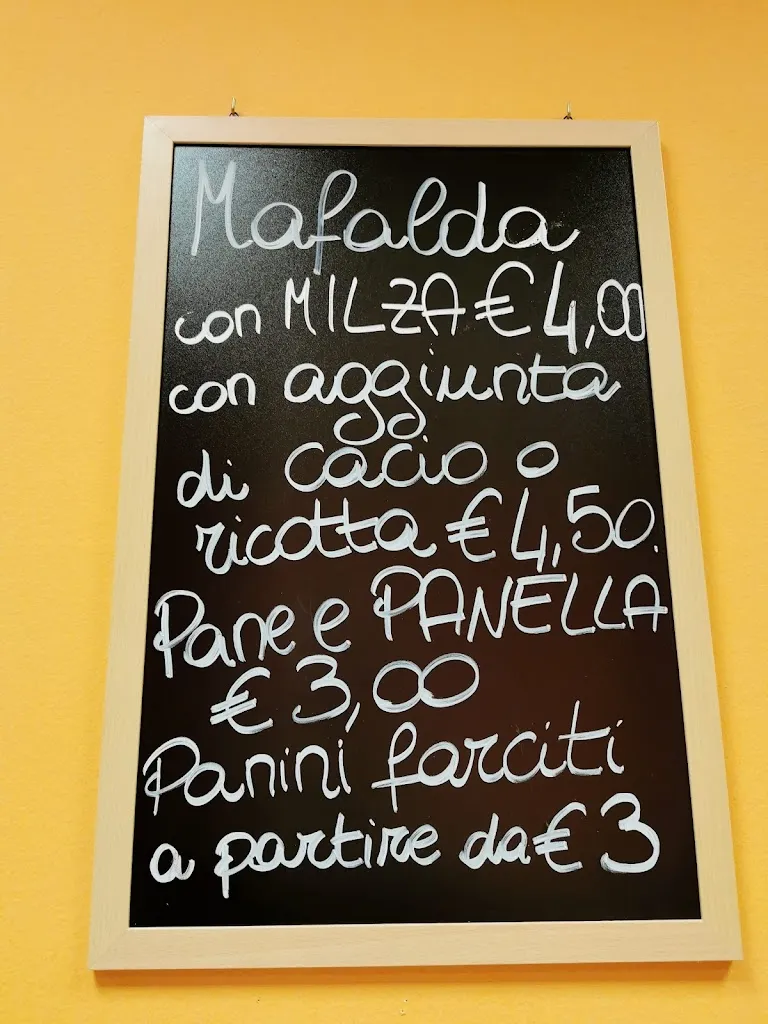 Mafalda
con MILZA € 4,00
con aggiunta
di cacio o
ricotta € 4,50.
Pane e PANELLA
€ 3,00
Panini farciti
a partire da € 3